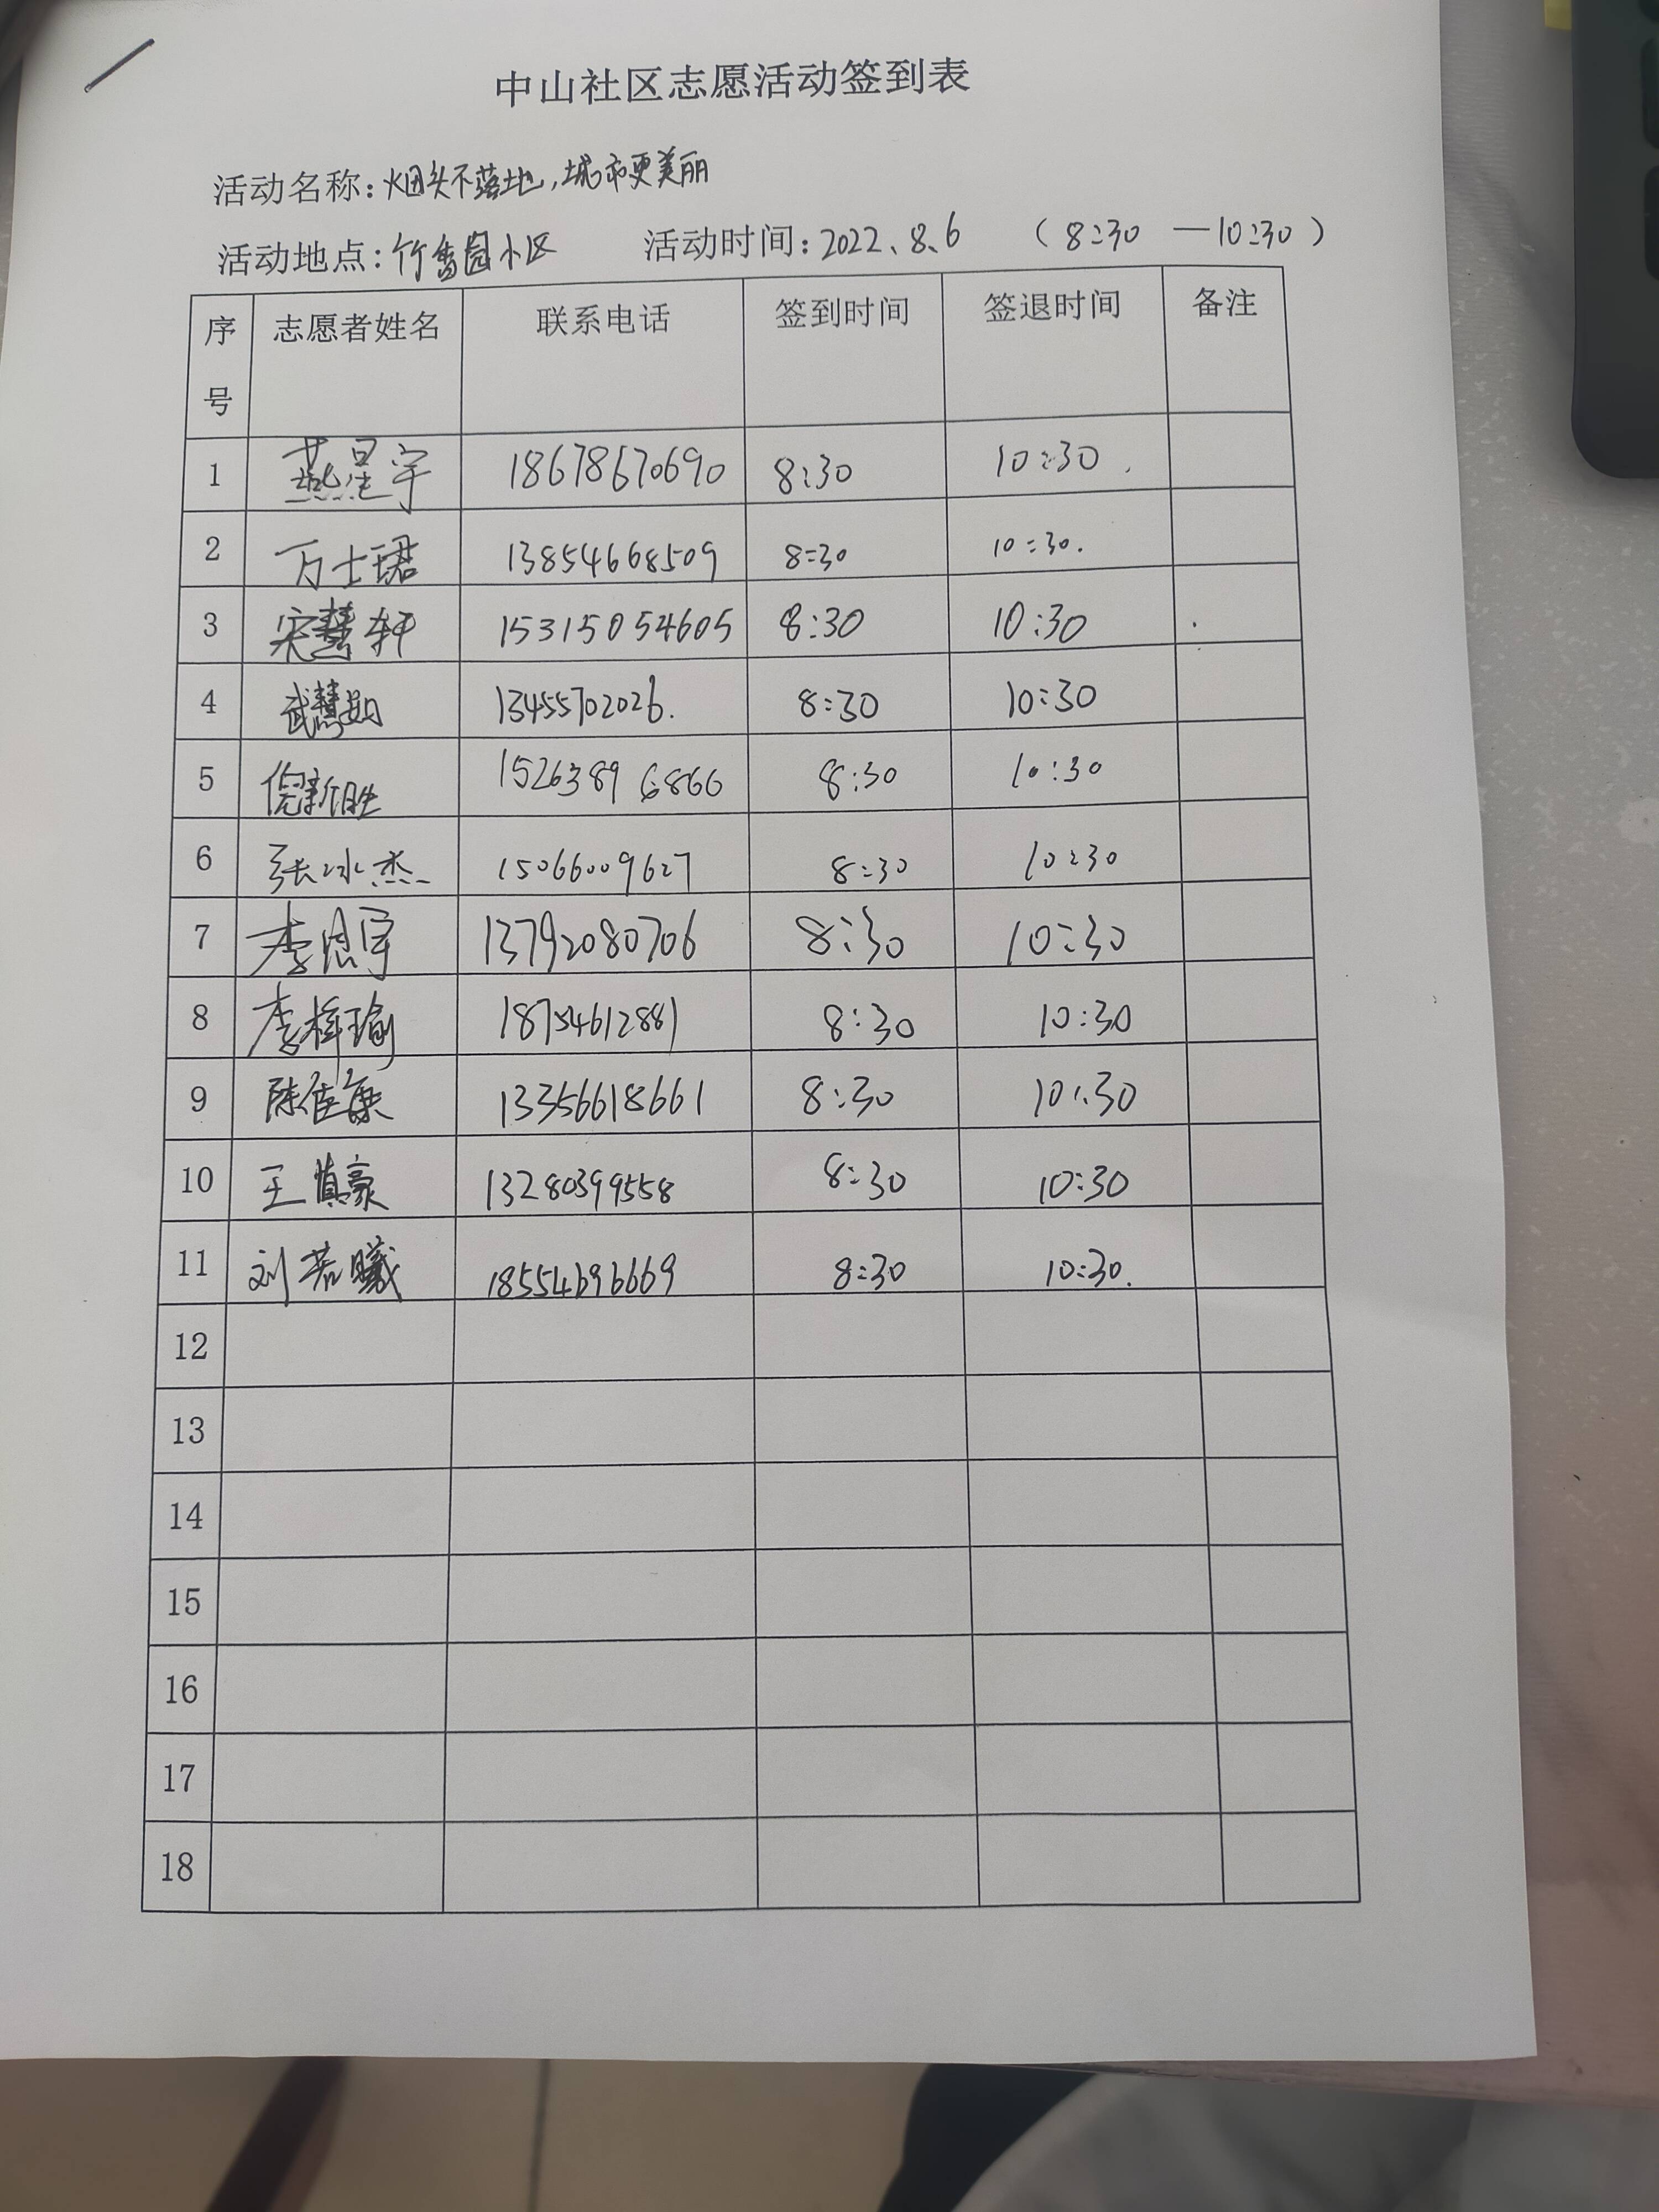 中山社区志愿活动签到表
活动名称:烟头不落地,城市更美丽
活动地点:竹香园小区 活动时间:2022、8、6 (8:30 —10:30)
序号 志愿者姓名 联系电话 签到时间 签退时间 备注
1 燕星宇 18678670690 8:30 10:30
2 万士珺 13854668509 8:30 10:30.
3 宋慧轩 15315054605 8:30 10:30
4 武慧如 13455702026. 8:30 10:30
5 倪新胜 15263896866 8:30 10:30
6 张冰杰 15066009627 8:30 10:30
7 李恩宇 13792080706 8:30 10:30
8 李梓瑜 18754612881 8:30 10:30
9 陈佳 13356618661 8:30 10:30
10 王慎豪 13280399558 8:30 10:30
11 刘若曦 18554696669 8:30 10:30.
12
13
14
15
16
17
18